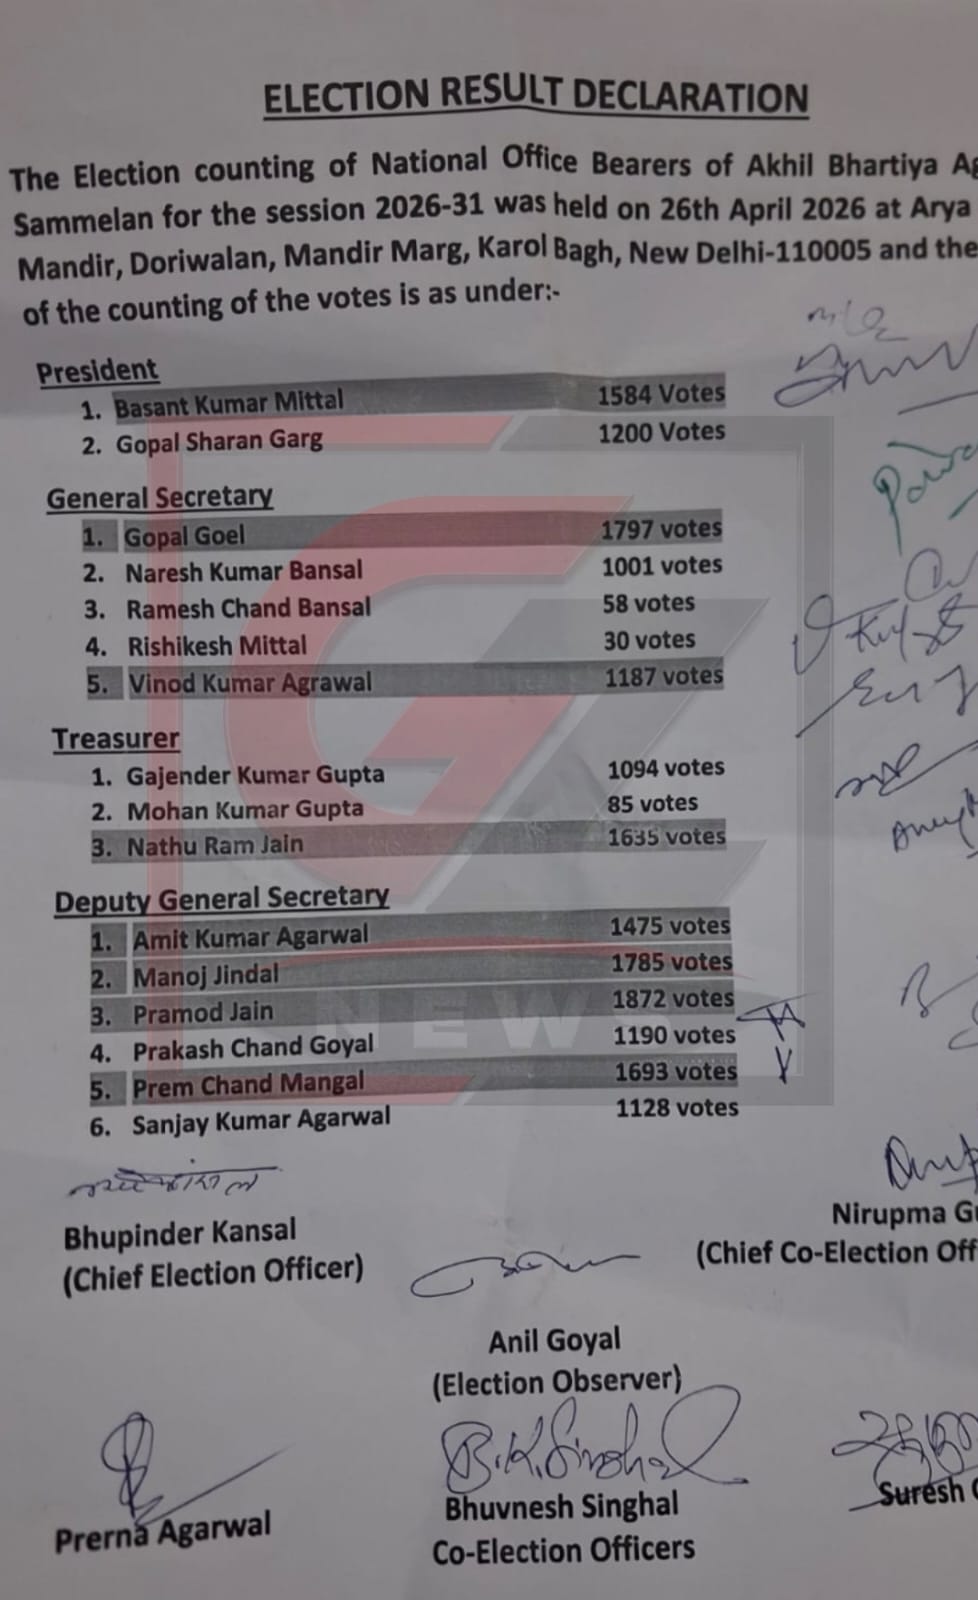 ELECTION RESULT DECLARATION
The Election counting of National Office Bearers of Akhil Bhartiya Ag
Sammelan for the session 2026-31 was held on 26th April 2026 at Arya
Mandir, Doriwalan, Mandir Marg, Karol Bagh, New Delhi-110005 and the
of the counting of the votes is as under:-
President
1. Basant Kumar Mittal 1584 Votes
2. Gopal Sharan Garg 1200 Votes
General Secretary
1. Gopal Goel 1797 votes
2. Naresh Kumar Bansal 1001 votes
3. Ramesh Chand Bansal 58 votes
4. Rishikesh Mittal 30 votes
5. Vinod Kumar Agrawal 1187 votes
Treasurer
1. Gajender Kumar Gupta 1094 votes
2. Mohan Kumar Gupta 85 votes
3. Nathu Ram Jain 1635 votes
Deputy General Secretary
1. Amit Kumar Agarwal 1475 votes
2. Manoj Jindal 1785 votes
3. Pramod Jain 1872 votes
NEWS
4. Prakash Chand Goyal 1190 votes
5. Prem Chand Mangal 1693 votes
6. Sanjay Kumar Agarwal 1128 votes
Bhupinder Kansal
(Chief Election Officer)
Nirupma Gu
(Chief Co-Election Off
Anil Goyal
(Election Observer)
B.K. Singhal
Prerna Agarwal
Bhuvnesh Singhal
Suresh G
Co-Election Officers